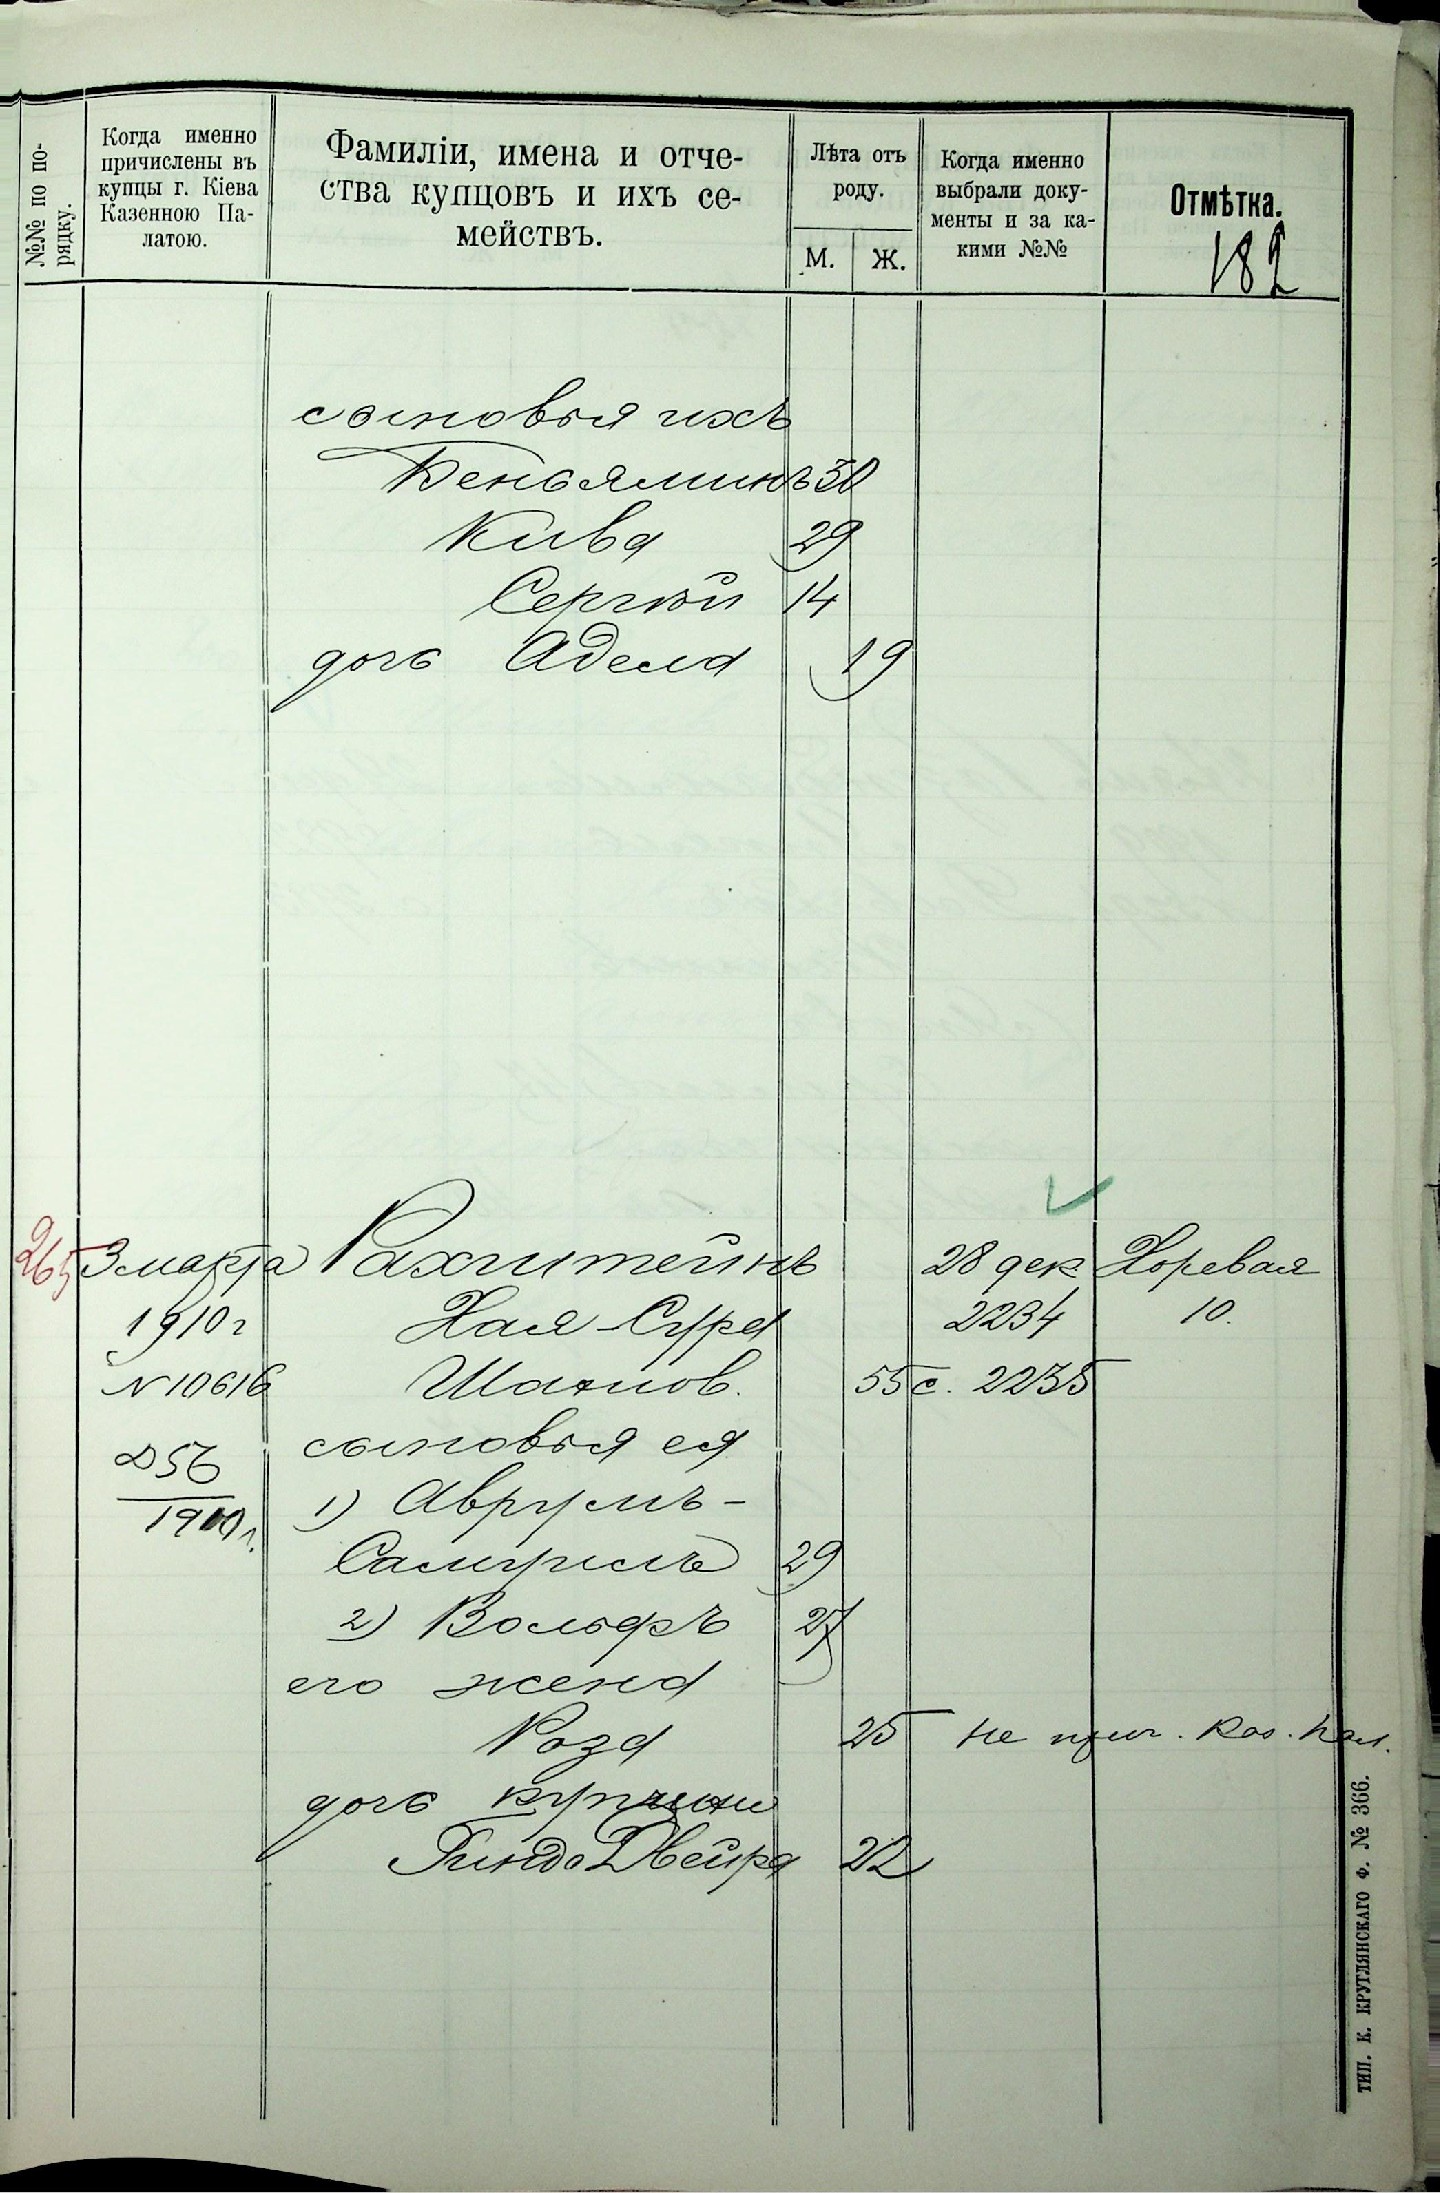 №№ по по-
рядку.
Когда именно
причислены въ
купцы г. Кіева
Казенною Па-
латою.
Фамиліи, имена и отче-
ства купцовъ и ихъ се-
мействъ.
Лѣта отъ
роду.
М. Ж.
Когда именно
выбрали доку-
менты и за ка-
кими №№
Отмѣтка.
182
сыновья ихъ
Беньяминъ 30
Кива 29
Сергѣй 14
дочь Адела 19
265 3 марта Рахштейнъ 28 дек Хоревая
1910 г Хая-Сура 2234 10.
N 10616 55 с. 2235
сыновья ея
1) Аврумъ-
Самуилъ 29
2) Вольфъ 27
его жена
Роза 25 не прич. Каз. Пал.
дочь купчихи
Гинда Двейра 22
ТИП. К. КРУГЛЯНСКАГО Ф. № 366.